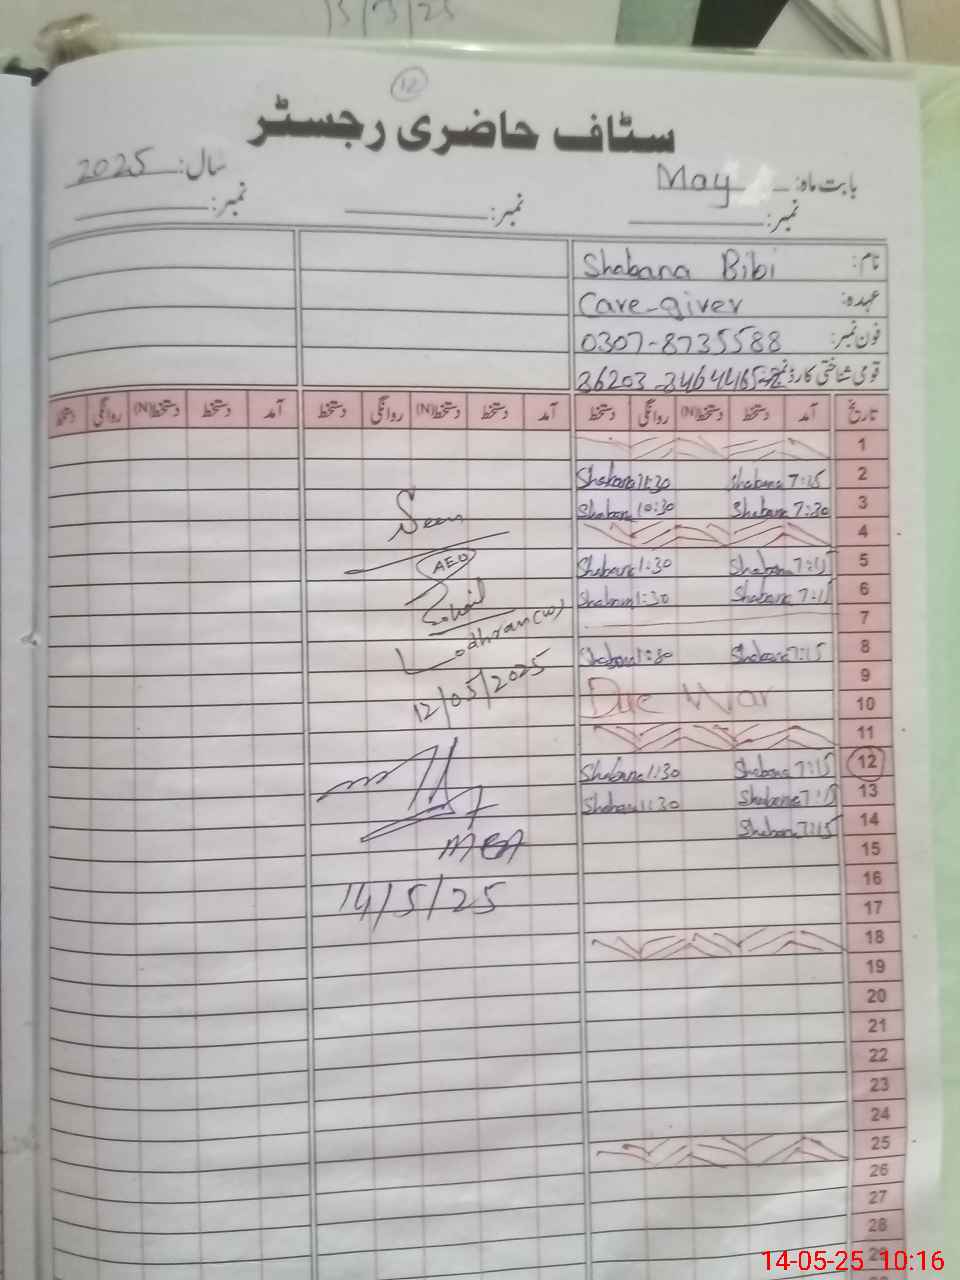 15/5/25
12
سٹاف حاضری رجسٹر
بابت ماہ: May سال: 2025
نمبر: نمبر: نمبر:
نام: Shabana Bibi
عہدہ: Care-giver
فون نمبر: 0307-8735588
قومی شناختی کارڈ نمبر: 36203-3464465-2
تاریخ آمد دستخط دستخط(N) روانگی دستخط آمد دستخط دستخط(N) روانگی دستخط آمد دستخط دستخط(N) روانگی دستخط
1
2 7:15 Shabana 11:30 Shabana
3 7:30 Shabana 10:30 Shabana
4
5 7:15 Shabana 1:30 Shabana
6 7:15 Shabana 1:30 Shabana
7
8 7:15 Shabana 1:30 Shabana
9
Due War
10
11
12 7:15 Shabana 1:30 Shabana
13 7:15 Shabana 1:30 Shabana
14 7:15 Shabana
15
16
17
18
19
20
21
22
23
24
25
26
27
28
29
Seen
AEO
Sohail
Lodhran(W)
12/05/2025
MEA
14/5/25
14-05-25 10:16